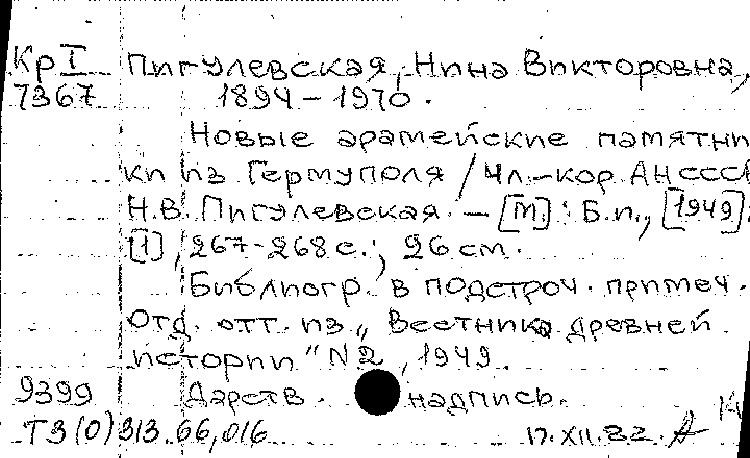 Кр I Пигулевская, Нина Викторовна,
7367 1894 – 1970.
Новые арамейские памятни
ки из Гермуполя / Чл.-кор. АН СССР
Н.В. Пигулевская. – [М.] : Б.и., [1949].
[1], 267-268 с. ; 26 см.
Библиогр. в подстроч. примеч.
Отд. отт. из „Вестника древней
истории" N 2, 1949.
9399 Дарств. надпись.
Т3(0)313.66,016 17.XII.82.